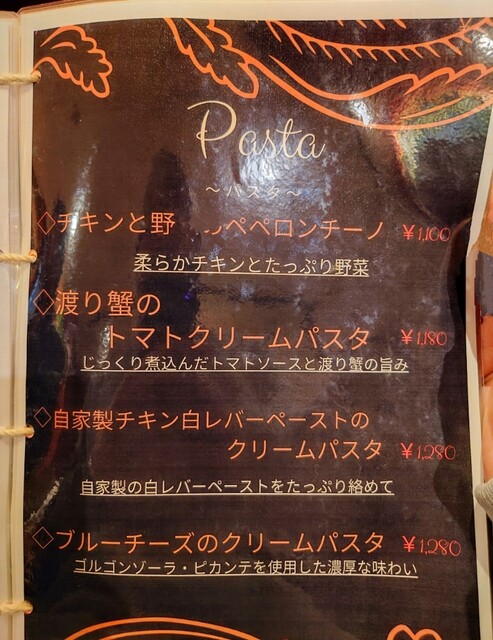 Pasta
～パスタ～
◇チキンと野 ペペロンチーノ ￥1,100
柔らかチキンとたっぷり野菜
◇渡り蟹の
トマトクリームパスタ ￥1,180
じっくり煮込んだトマトソースと渡り蟹の旨み
◇自家製チキン白レバーペーストの
クリームパスタ ￥1,280
自家製の白レバーペーストをたっぷり絡めて
◇ブルーチーズのクリームパスタ ￥1,280
ゴルゴンゾーラ・ピカンテを使用した濃厚な味わい